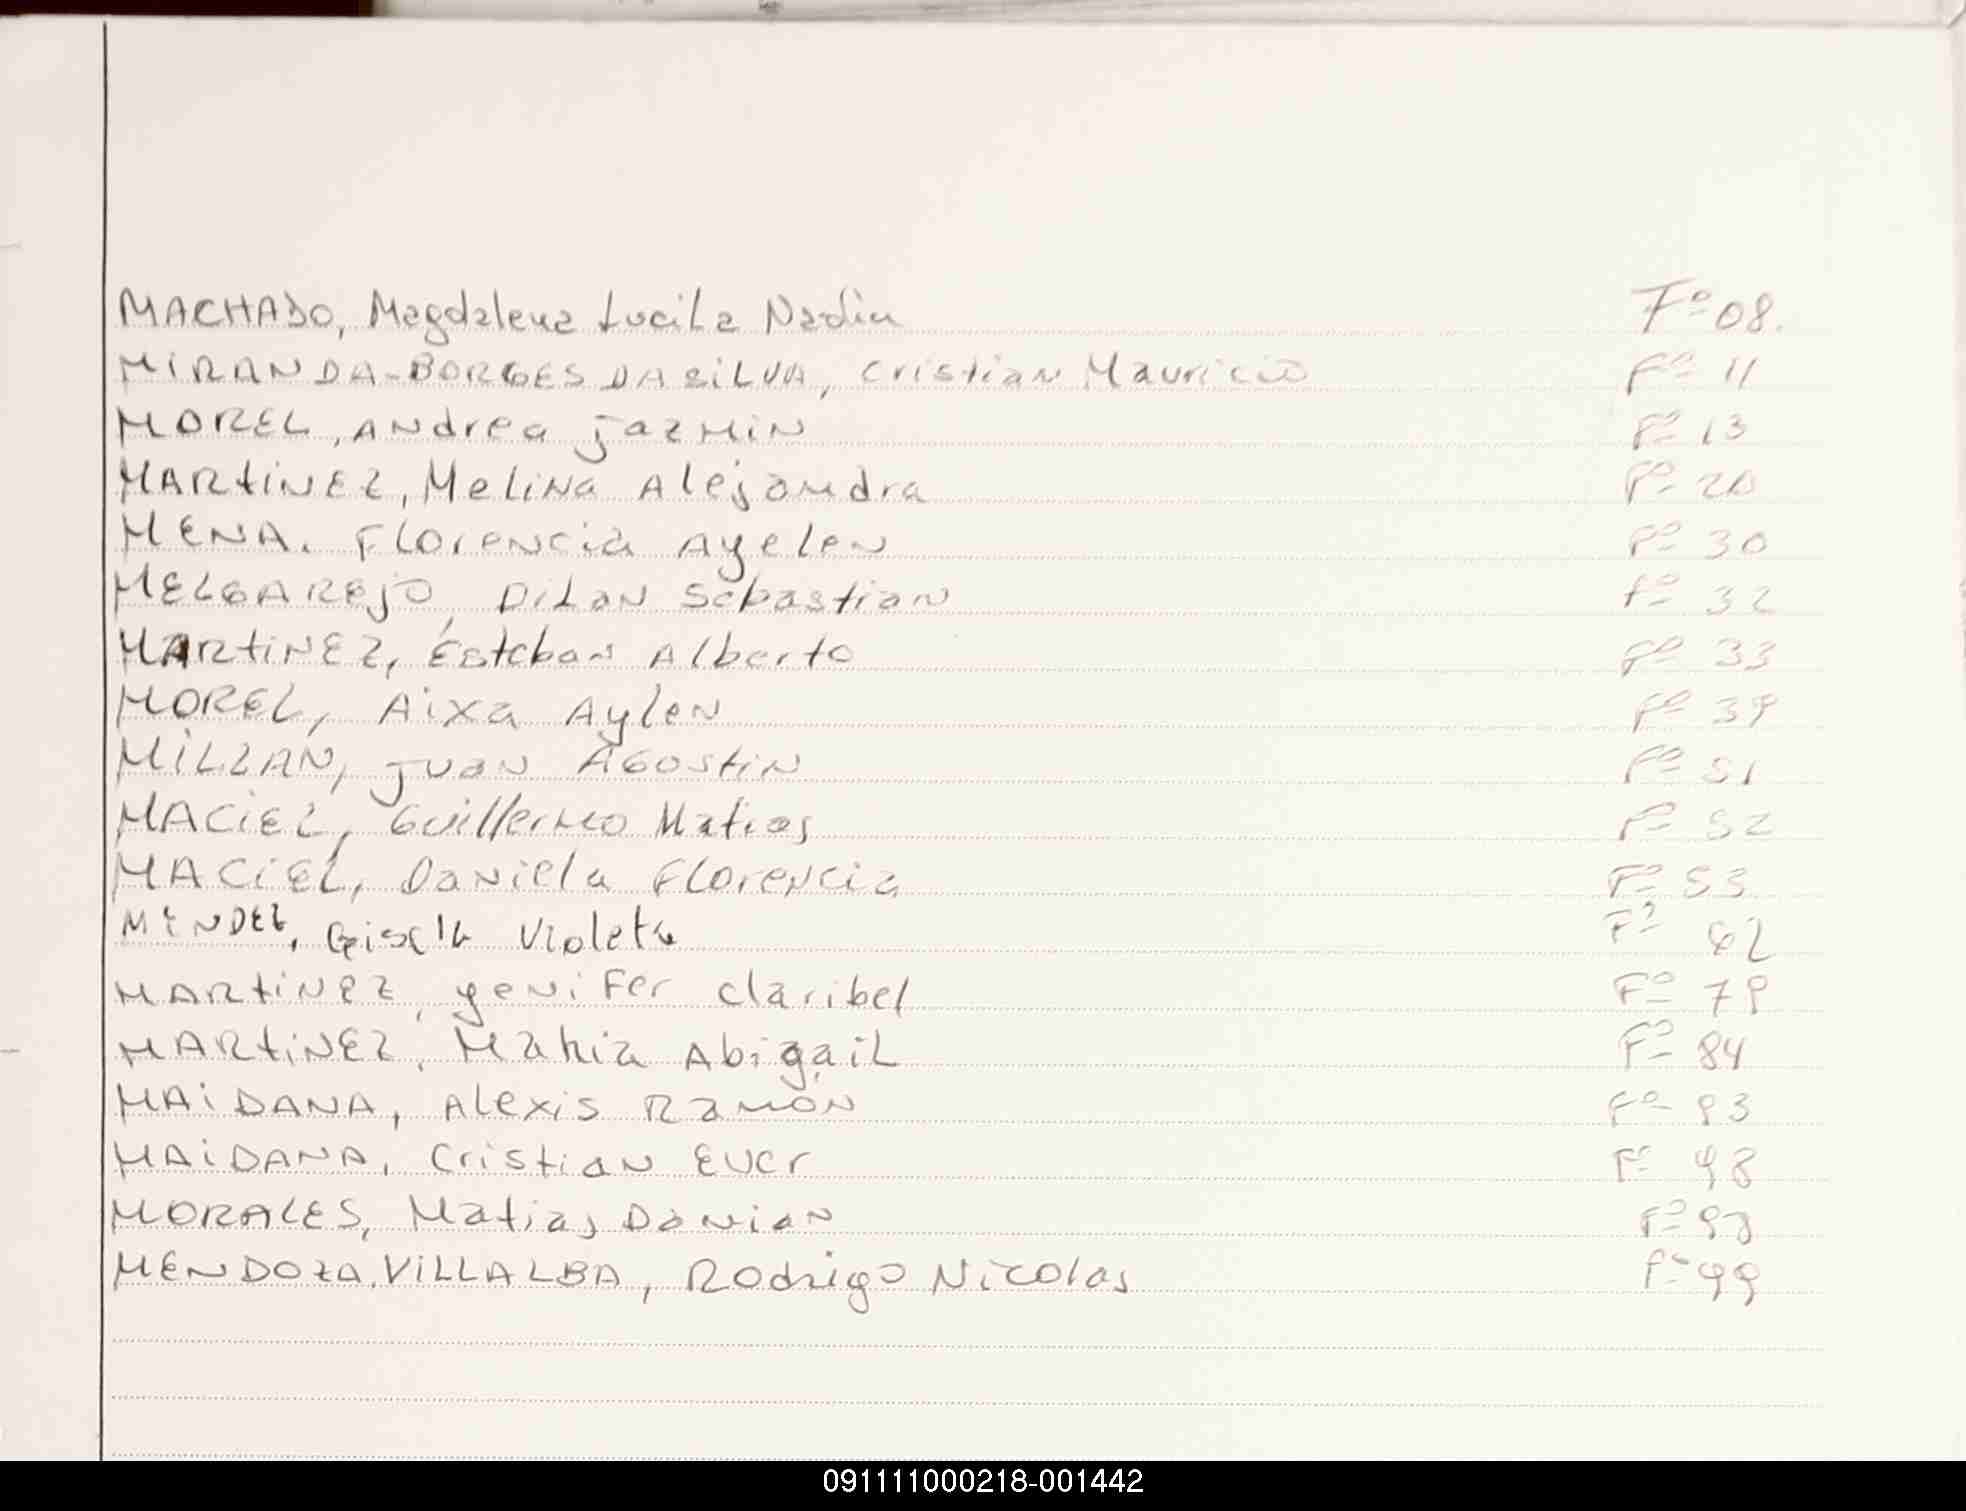 MACHADO, Magdalena Lucila Nadin F° 08.
MIRANDA-BORGES DA SILVA, Cristian Mauricio F° 11
MOREL, Andrea Jazmin F° 13
MARTINEZ, Melina Alejandra F° 20
MENA. Florencia Ayelen F° 30
MELGAREJO, Dilan Sebastian F° 32
MARTINEZ, Esteban Alberto F° 33
MOREL, Aixa Aylen F° 39
MILLAN, Juan Agostin F° 51
MACIEL, Guillermo Matias F° 52
MACIEL, Daniela Florencia F° 53
MENDEZ, Gisela Violeta F° 62
MARTINEZ, yenifer claribel F° 79
MARTINEZ, Mahia Abigail F° 84
MAIDANA, Alexis Ramón F° 93
MAIDANA, Cristian Ever F° 98
MORALES, Matias Damian F°
MENDOZA, VILLALBA, Rodrigo Nicolas F° 99
091111000218-001442